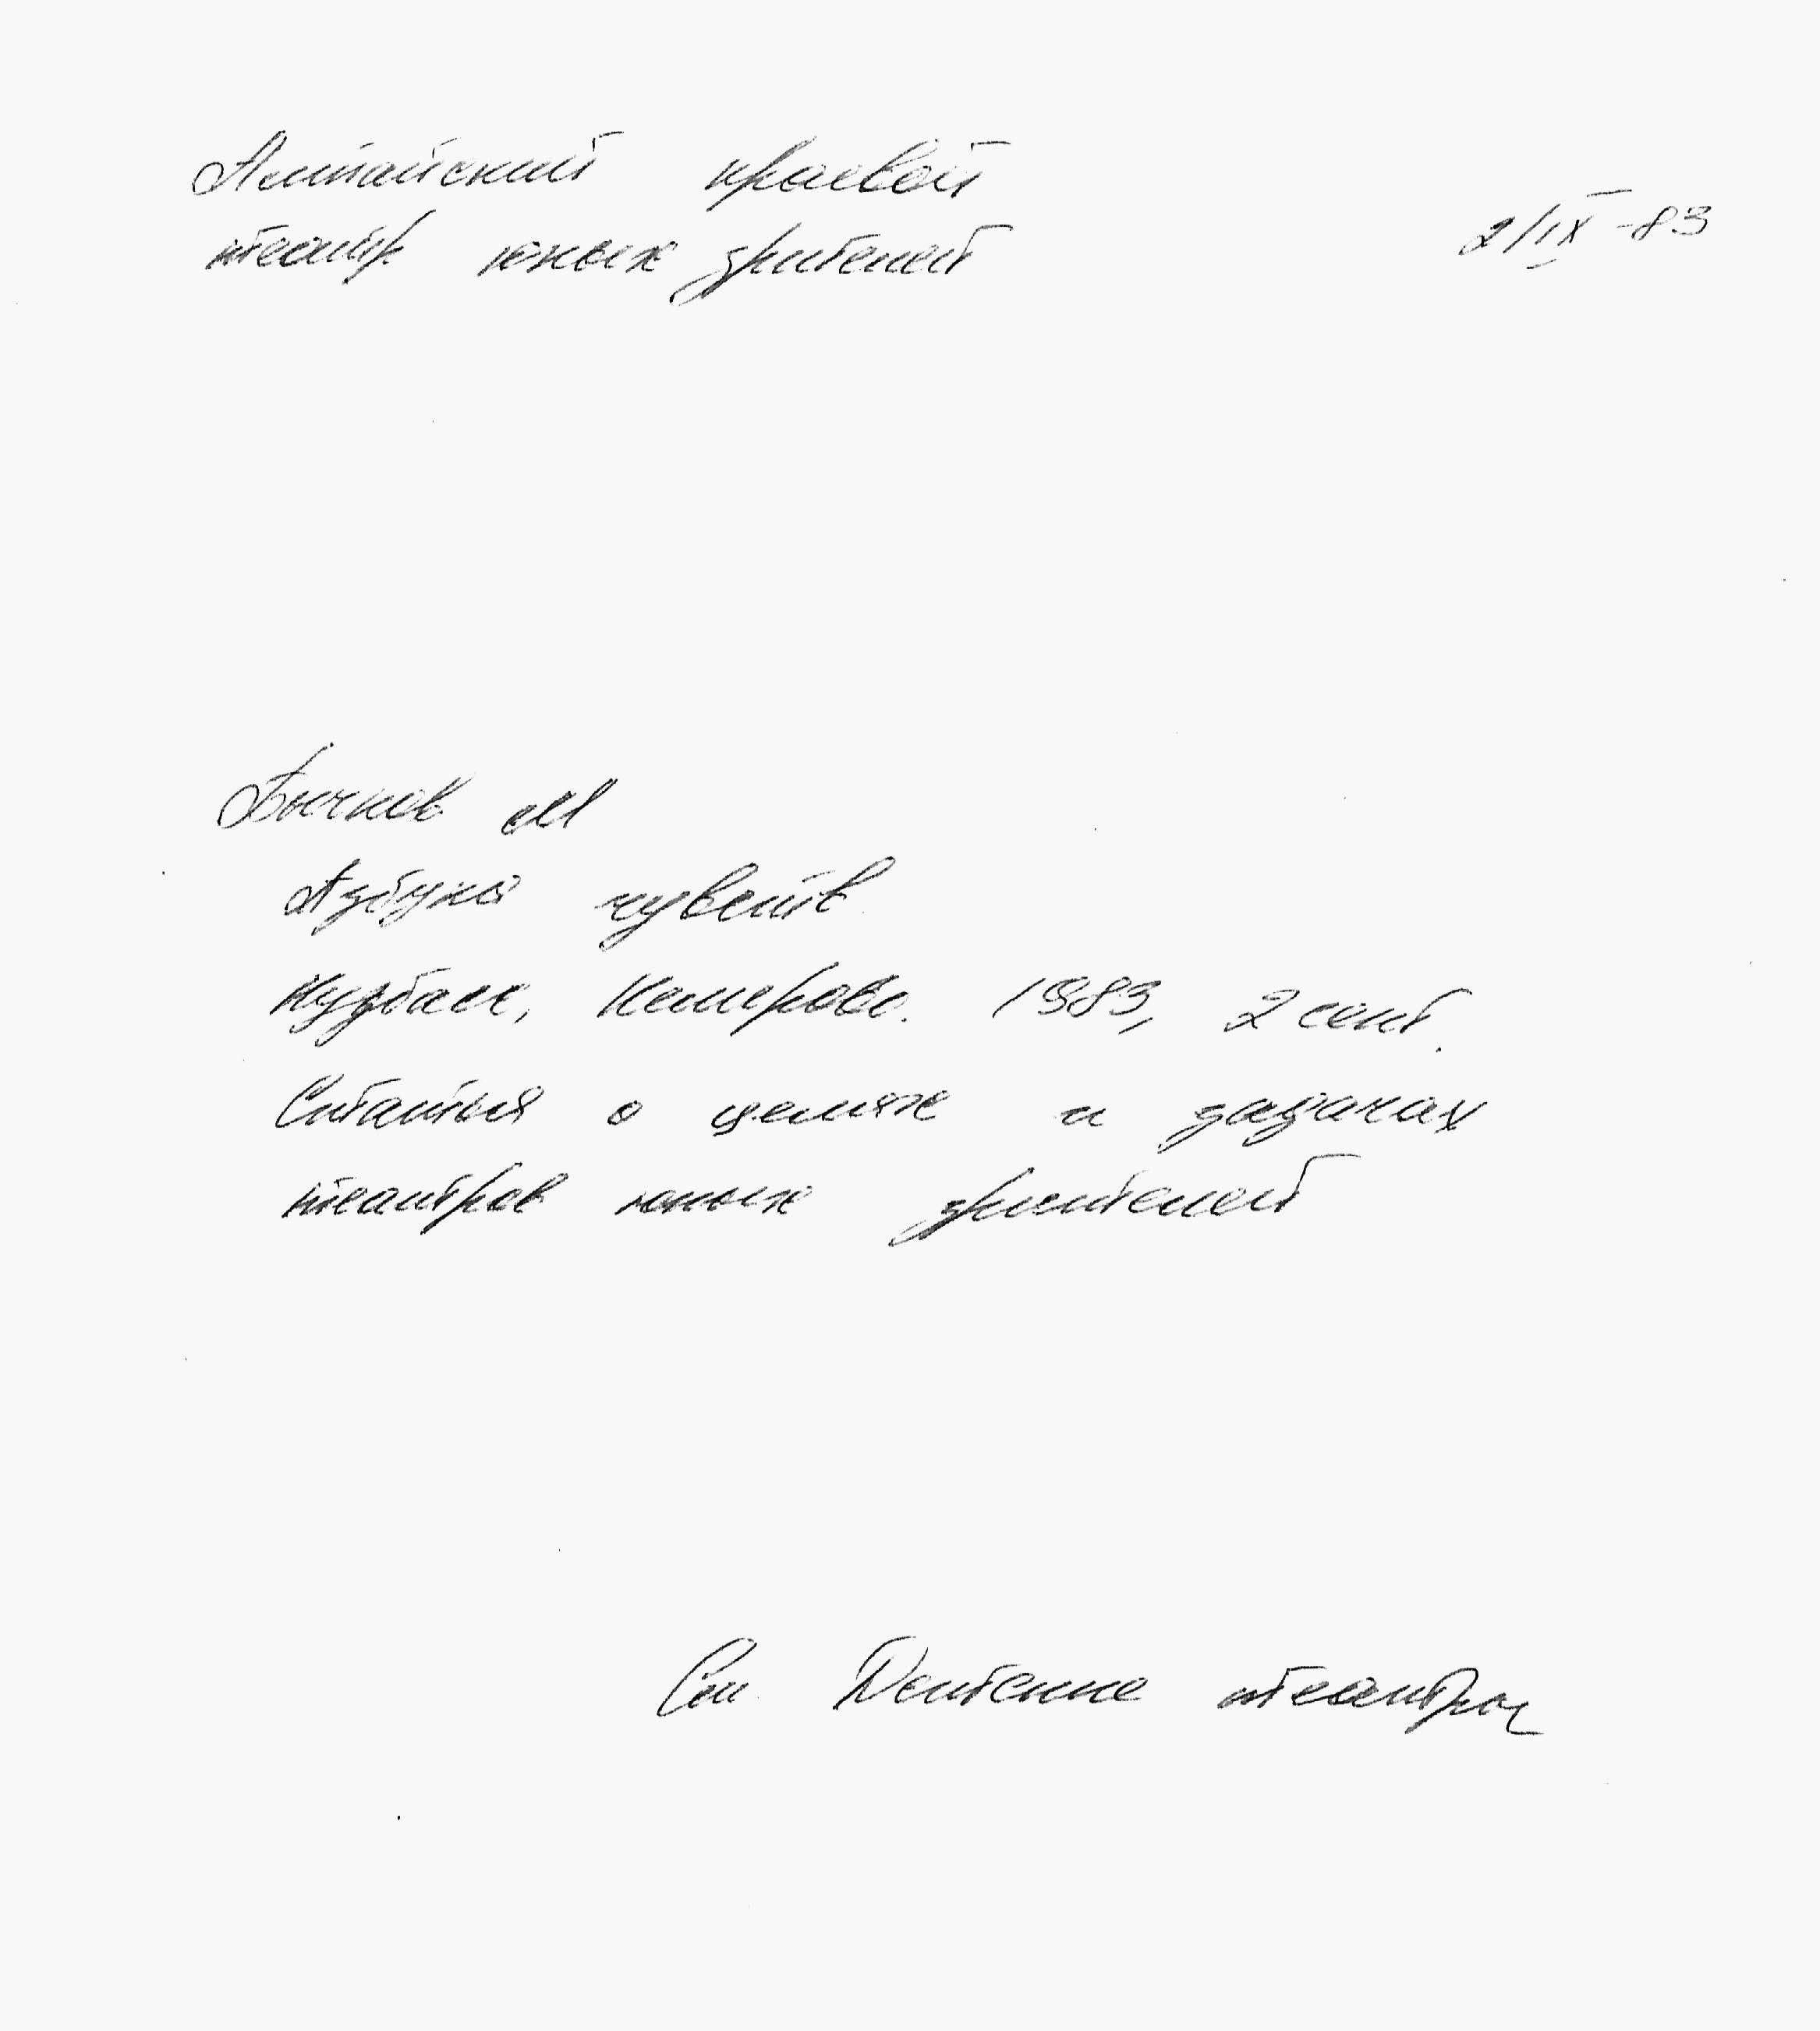 Алтайский краевой
театр юных зрителей
2/IX-83
Бычков М
Азбука чувств
Кузбасс, Кемерово. 1983, 2 сент.
Статья о целях и задачах
театров юных зрителей
См. Детские театры